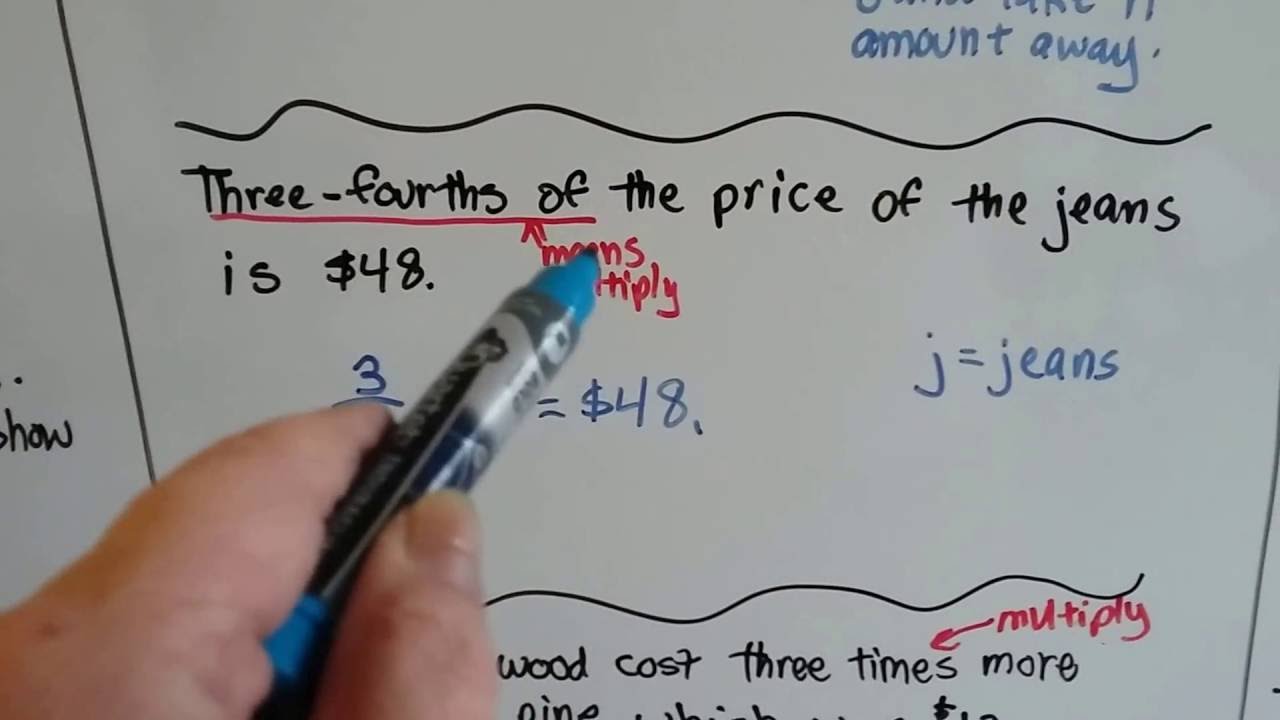 amount away.
Three-fourths of the price of the jeans
is $48.
means
3
= $48.
j = jeans
show
multiply
wood cost three times more